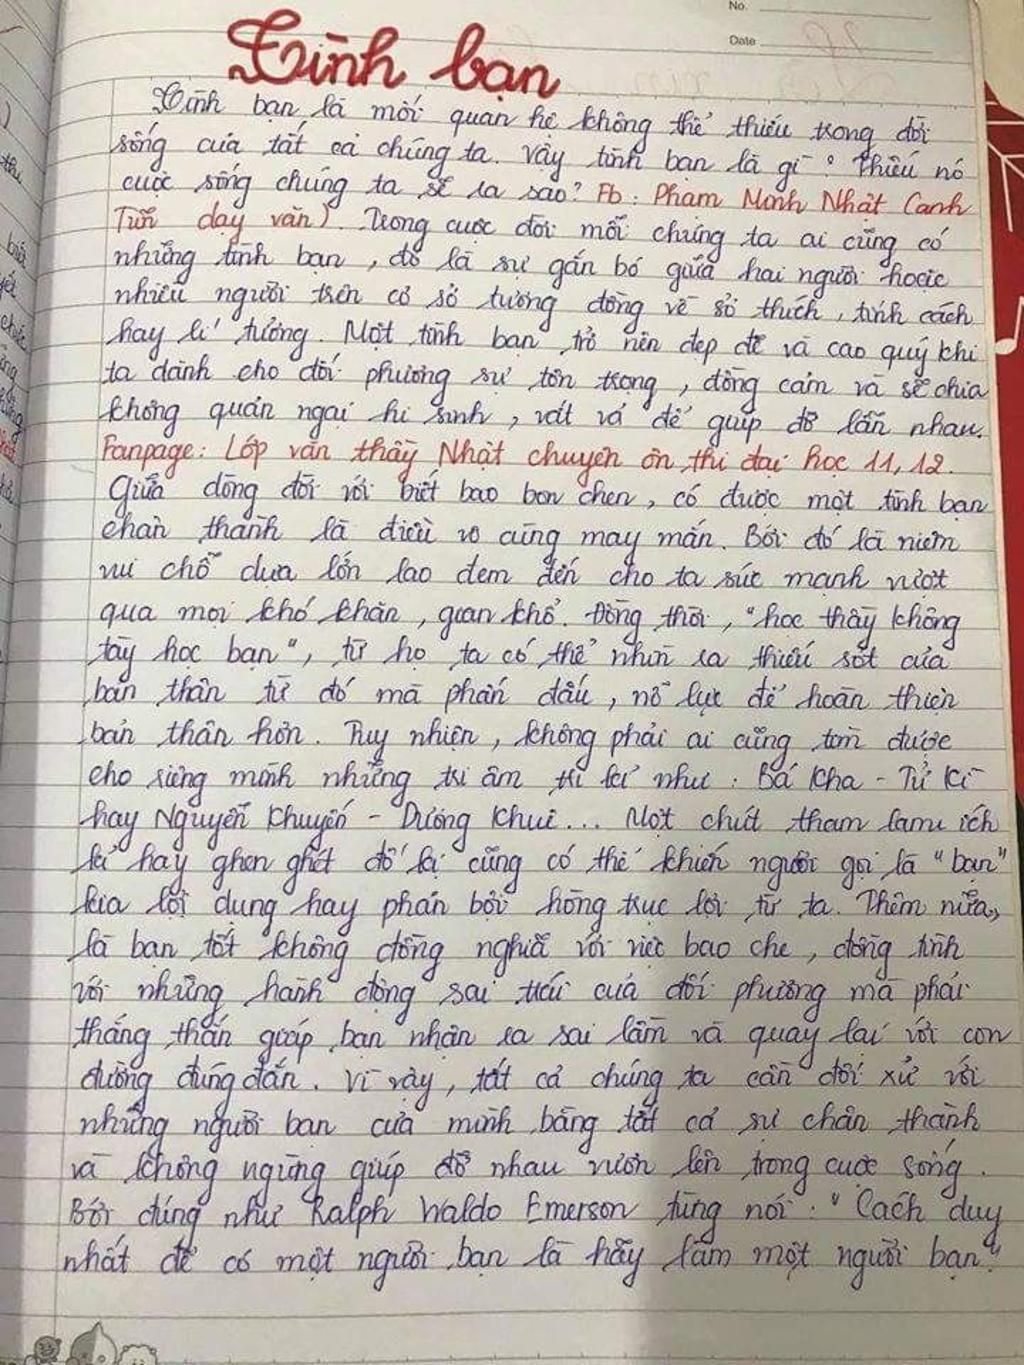 No.
Date
Tình bạn
Tình bạn là mối quan hệ không thể thiếu trong đời
sống của tất cả chúng ta. Vậy tình bạn là gì? Thiếu nó
cuộc sống chúng ta sẽ ra sao? Fb: Phạm Minh Nhật (anh
Tũn dạy văn). Trong cuộc đời mỗi chúng ta ai cũng có
những tình bạn, đó là sự gắn bó giữa hai người hoặc
nhiều người trên cơ sở tương đồng về sở thích, tính cách
hay lí tưởng. Một tình bạn trở nên đẹp đẽ và cao quý khi
ta dành cho đối phương sự tôn trọng, đồng cảm và sẻ chia
không quản ngại hi sinh, vất vả để giúp đỡ lẫn nhau.
Fanpage: Lớp văn thầy Nhật chuyên ôn thi đại học 11, 12.
Giữa dòng đời với biết bao bon chen, có được một tình bạn
chân thành là điều vô cùng may mắn. Bởi đó là niềm
vui chỗ dựa lớn lao đem đến cho ta sức mạnh vượt
qua mọi khó khăn, gian khổ. Đồng thời, "học thầy không
tày học bạn", từ họ ta có thể nhìn ra thiếu sót của
bản thân từ đó mà phấn đấu, nỗ lực để hoàn thiện
bản thân hơn. Tuy nhiên, không phải ai cũng tìm được
cho riêng mình những tri âm tri kỉ như: Bá Kha - Tử Kì
hay Nguyễn Khuyến - Dương Khuê... Một chút tham lam ích
kỉ hay ghen ghét đố kị cũng có thể khiến người gọi là "bạn"
kia lợi dụng hay phản bội hòng trục lợi từ ta. Thêm nữa,
là bạn tốt không đồng nghĩa với việc bao che, đồng tình
với những hành động sai trái của đối phương mà phải
thẳng thắn giúp bạn nhận ra sai lầm và quay lại với con
đường đúng đắn. Vì vậy, tất cả chúng ta cần đối xử với
những người bạn của mình bằng tất cả sự chân thành
và không ngừng giúp đỡ nhau vươn lên trong cuộc sống.
Bởi đúng như Ralph Waldo Emerson từng nói: "Cách duy
nhất để có một người bạn là hãy làm một người bạn"